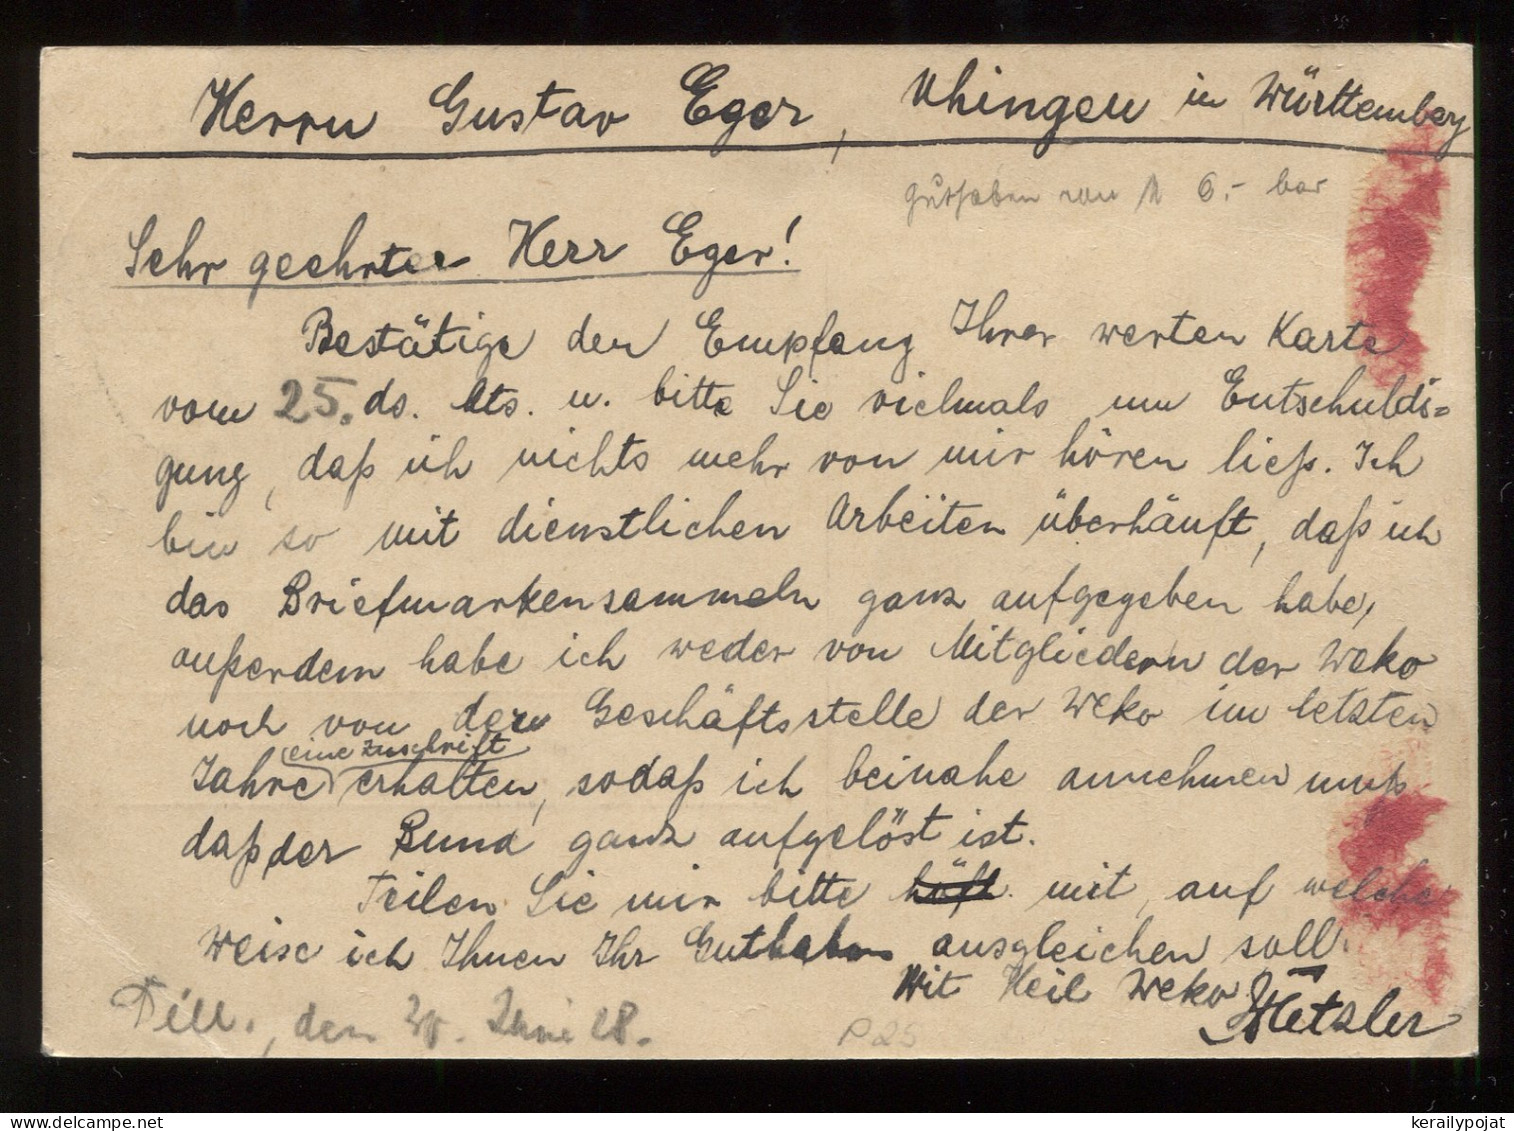 Herrn Gustav Eger, Uhingen in Württemberg
Guthaben von M 6.- bar
Sehr geehrter Herr Eger!
Bestätige den Empfang Ihrer werten Karte
vom 25. ds. Mts. u. bitte Sie vielmals um Entschuldi=
gung, daß ich nichts mehr von mir hören ließ. Ich
bin so mit dienstlichen Arbeiten überhäuft, daß ich
das Briefmarkensammeln ganz aufgegeben habe,
außerdem habe ich weder von Mitgliedern der Weko
noch von der Geschäftsstelle der Weko im letzten
eine Zuschrift
Jahre erhalten, sodaß ich beinahe annehmen muß
daß der Bund ganz aufgelöst ist.
Teilen Sie mir bitte mit, auf welche
Weise ich Ihnen Ihr Guthaben ausgleichen soll.
Mit Heil Weko!
Metzler
Dill., den 30. Juni 28.
P 25
kerailypojat @ www.delcampe.net